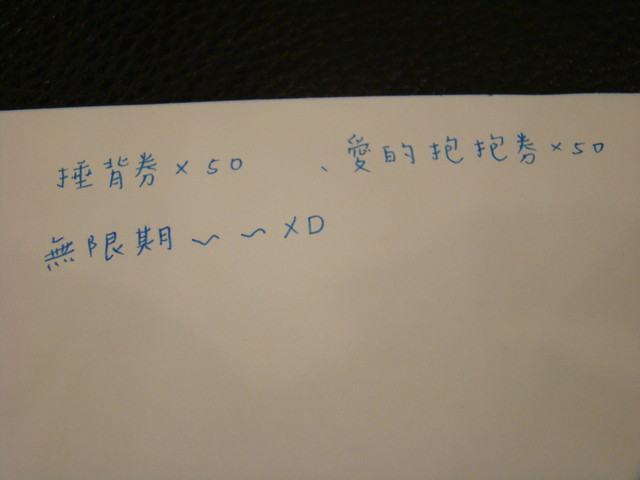 捶背券×50 、愛的抱抱券×50
無限期~~XD